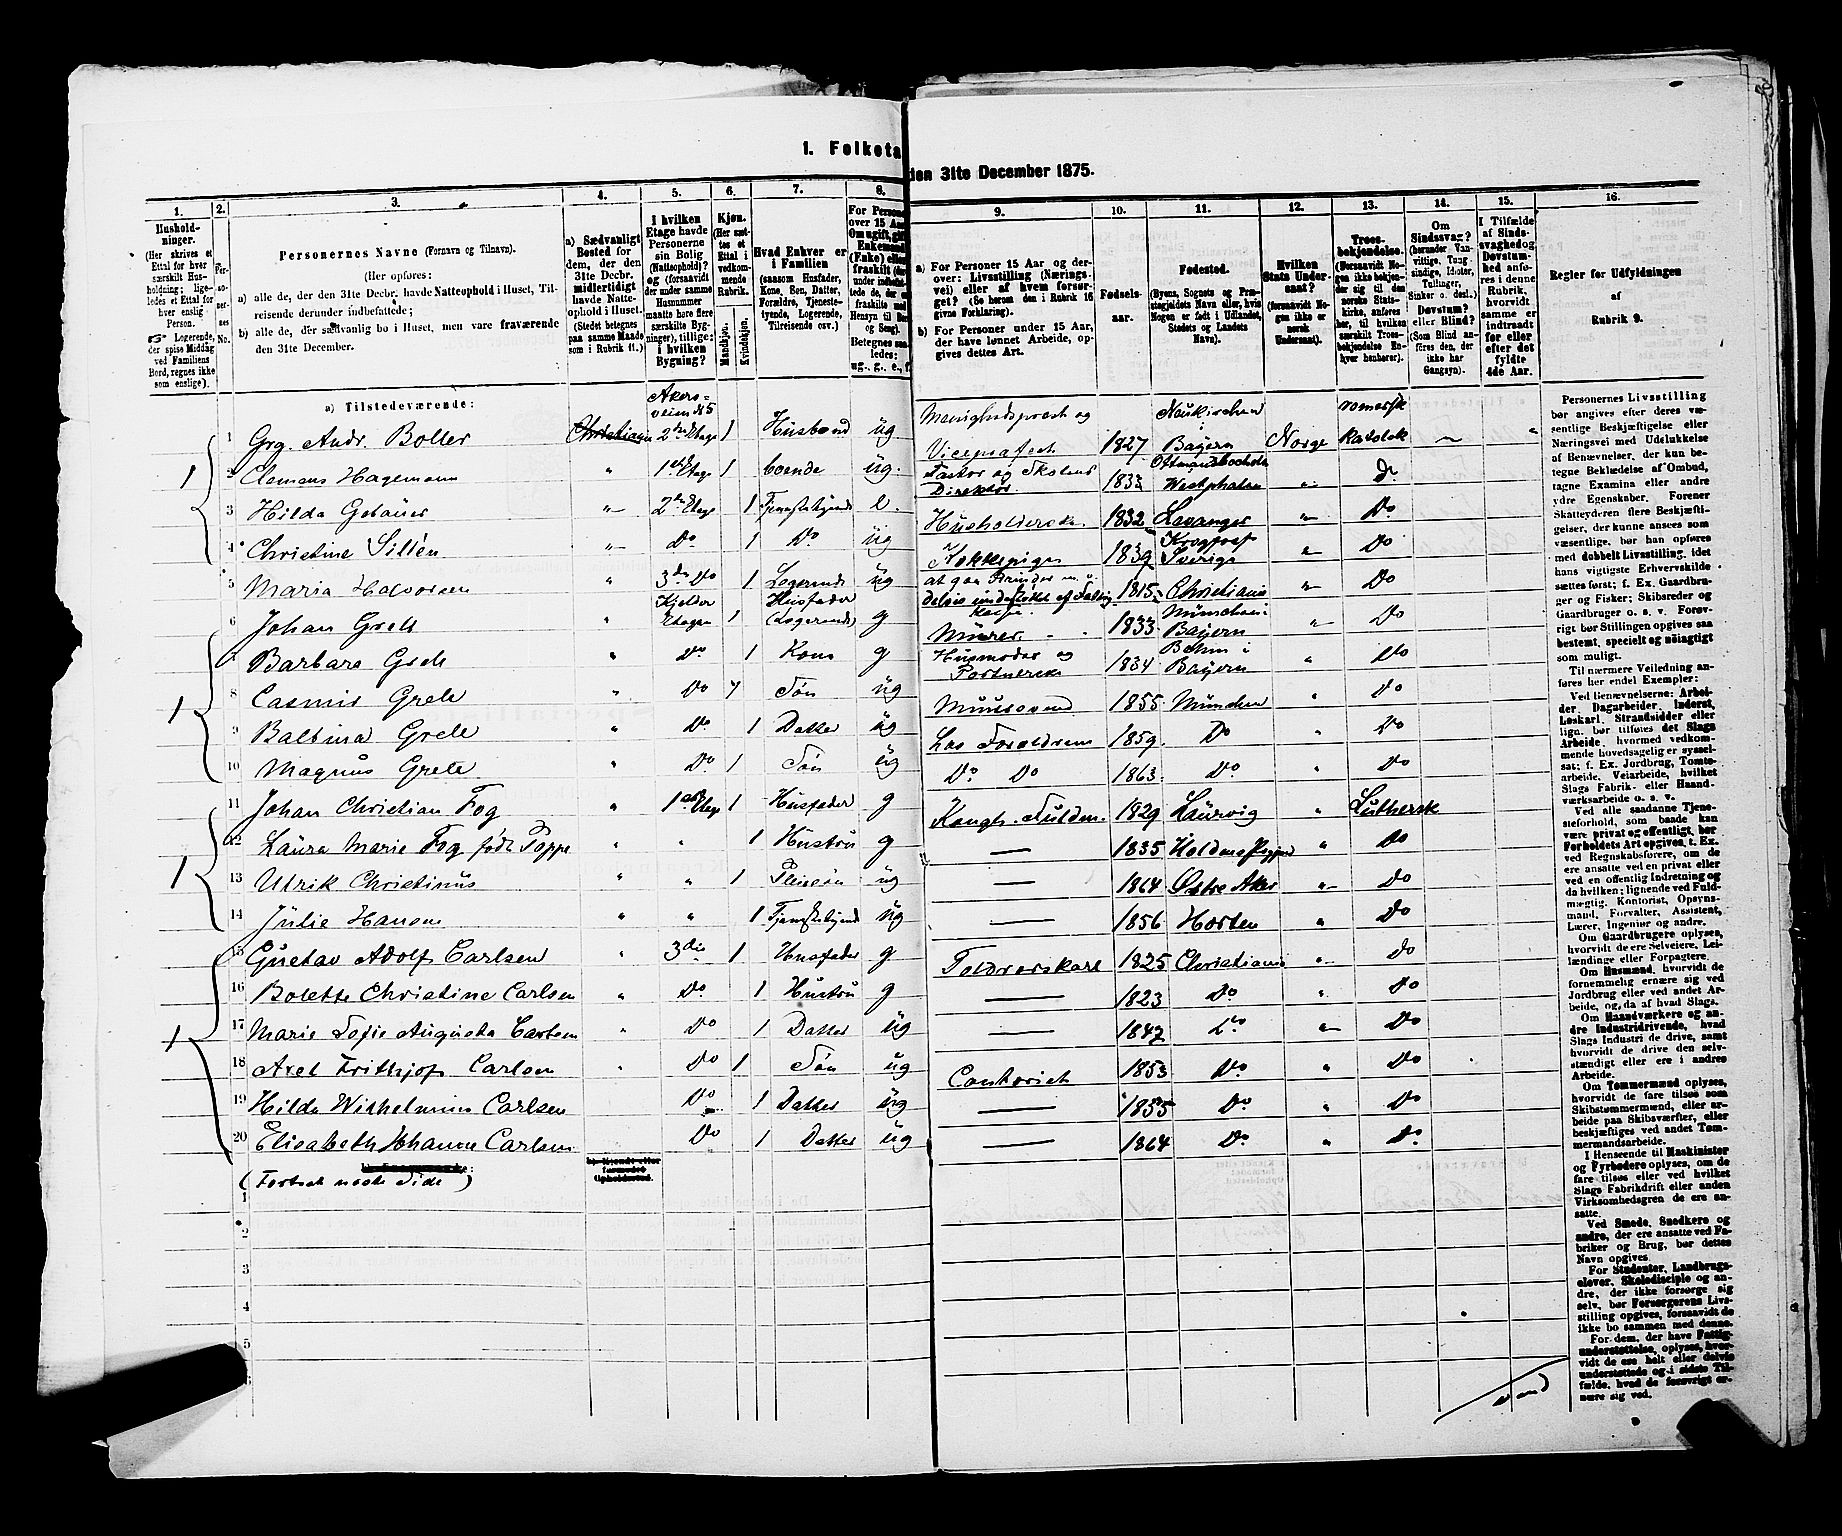 1. Folketa
den 31te December 1875.
1.
Hushold-
ninger.
(Her skrives et
Ettal for hver
særskilt Hus-
holdning; lige-
ledes et Ettal for
hver enslig
Person.
Logerende,
der spise Middag
ved Familiens
Bord, regnes ikke
som enslige).
2.
Per-
so-
ner-
nes
No.
3.
Personernes Navne (Fornavn og Tilnavn).
(Her opføres:
a) alle de, der den 31te Decbr. havde Natteophold i Huset, Til-
reisende derunder indbefattede;
b) alle de, der sædvanlig bo i Huset, men vare fraværende
den 31te December.
4.
a) Sædvanligt
Bosted for
dem, der den
31te Decbr.
midlertidigt
havde Natte-
ophold i Huset.
(Stedet betegnes
paa samme Maade
som i Rubrik 11.)
5.
I hvilken
Etage havde
Personerne
sin Bolig
(Natteophold)?
og (forsaavidt
der under samme
Husnummer
maatte hare flere
særskilte Byg-
ninger), tillige:
i hvilken
Bygning?
6.
Kjøn.
(Her sæt-
tes et
Ettal i
vedkom-
mende
Rubrik.
Mandkjøn.
Kvindekjøn.
7.
Hvad Enhver er
i Familien
(saasom Husfader,
Kone, Søn, Datter,
Forældre, Tjeneste-
tyende, Logerende,
Tilreisende osv.)
8.
9.
a) For Personer 15 Aar og der-
over: Livsstilling (Nærings-
vei) eller af hvem forsør-
get? (Se herom den i Rubrik 16
givne Forklaring).
b) For Personer under 15 Aar,
der have lønnet Arbeide, op-
gives dettes Art.
10.
Fødsels-
aar.
11.
Fødested.
(Byens, Sognets og Præ-
stegjeldets Navn eller, hvis
Nogen er født i Udlandet,
Stedets og Landets
Navn).
12.
Hvilken
Stats Under-
saat?
(forsaavidt No-
gen ikke er
norsk
Undersaat).
13.
Troes-
bekjendelse.
(Forsaavidt No-
gen ikke bekjen-
der sig til den
norske Stats-
kirke, anføres
her, til hvilken
særskilt Troes-
bekjendelse En-
hver henhører).
14.
Om
Sindssvag?
(herunder Van-
vittige, Tung-
sindige, Idioter,
Tullinger,
Sinker o. desl.)
Døvstum?
eller Blind?
(Som Blind an-
føres den, der
ikke har
Gangsyn).
15.
I Tilfælde
af Sinds-
svaghed og
Døvstum-
hed anfø-
res i denne
Rubrik,
hvorvidt
samme er
indtraadt
før eller
efter det
fyldte
4de Aar.
16.
Regler for Udfyldningen
af
Rubrik 9.
a) Tilstedeværende:
1 Grg. Andr. Boller Christiania Akersveien № 5 2den Etage 1 Husbond ug Menighedspræst og Vicepræfect 1827 Neukirchen Bayern Norge romersk Katolsk
2 Clemens Hagemann " 1ste Etage 1 boende ug. Pastor og Skolens Direktør 1833 Westphalen " Do
3 Hilda Gebauer " 2den Etage 1 Tjenestetyende e. Husholderske 1832 Levanger " Do
4 Christine Sillén " Do 1 Do ug Kokkepige 1839 Sverige " Do
5 Maria Halvorsen " 3die Do 1 Logerende ug 1815 Christiania " Do
6 Johan Grele " Kjelder Etagen 1 Husfader (Logerende) g Murer 1833 München i Bayern " Do
7 Barbara Grele " Do 1 Kone g Husmoder og Portnerske 1834 Bayern " Do
8 Casmir Grele " Do 1 Søn ug Muursvend 1855 München " Do
9 Balbina Grele " Do 1 Datter ug Hos Forældrene 1859 Do " Do
10 Magnus Grele " Do 1 Søn ug Do Do 1863 Do " Do
11 Johan Christian Fog " 1ste Etage 1 Husfader g Kongl. Fuldm. 1829 Laurvig " Luthersk
12 Laura Marie Fog født Poppe " " 1 Hustru g — 1835 " Do
13 Ulrik Christinus " " 1 Pleiesøn ug — 1864 Østre Aker " Do
14 Julie Hansen " " 1 Tjenestetyende ug — 1856 Horten " Do
15 Gustav Adolf Carlsen " 3die 1 Husfader g Toldrorskarl 1825 Christiania " Do
16 Bolette Christine Carlsen " Do 1 Hustru g — 1823 Do " Do
17 Marie Sofie Augusta Carlsen " Do 1 Datter ug — 1847 Do " Do
18 Axel Frithjof Carlsen " Do 1 Søn ug Contorist 1853 Do " Do
19 Hilda Wilhelmine Carlsen Do 1 Datter ug — 1855 Do " Do
20 Elisabeth Johanne Carlsen Do 1 Datter ug — 1864 Do " Do
(Fortsat næste Side)
1
2
3
4
5
Personernes Livsstilling
bør angives efter deres væ-
sentlige Beskjæftigelse eller
Næringsvei med Udelukkelse
af Benævnelser, der kun be-
tegne Beklædelse af Ombud,
tagne Examina eller andre
ydre Egenskaber. Forener
Skatteyderen flere Beskjæfti-
gelser, der kunne ansees som
væsentlige, bør han opføres
med dobbelt Livsstilling, idet
hans vigtigste Erhvervskilde
sættes først; f. Ex. Gaardbru-
ger og Fisker; Skibsreder og
Gaardbruger o. s. v. Forøv-
rigt bør Stillingen opgives saa
bestemt, specielt og nøiagtig
som muligt.
Til nærmere Veiledning an-
føres her endel Exempler:
Ved Benævnelserne: Arbei-
der, Dagarbeider, Inderst,
Løskarl, Strandsidder eller
lign. bør tilføres det Slags
Arbeide, hvormed vedkom-
mende hovedsagelig er syssel-
sat; f. Ex. Jordbrug, Tomte-
arbeide, Veiarbeide, hvilket
Slags Fabrik- eller Haand-
værksarbeide o. s. v.
Ved alle saadanne Tjene-
steforhold, som baade kan
være privat og offentligt, bør
Forholdets Art opgives, t. Ex.
ved Regnskabsførere, om de
ere ansatte ved en privat eller
ved en offentlig Indretning og
da hvilken; lignende ved Fuld-
mægtig, Kontorist, Opsyns-
mand, Forvalter, Assistent,
Lærer, Ingeniør og andre.
Om Gaardbrugere oplyses,
hvorvidt de ere Selveiere, Lei-
lændinge eller Forpagtere.
Om Husmænd, hvorvidt de
fornemmelig ernære sig ved
Jordbrug eller ved andet Ar-
beide, og da af hvad Slags.
Om Haandværkere og an-
dre Industridrivende, hvad
Slags Industri de drive, samt
hvorvidt de drive den selv-
stændigt eller ere i andres
Arbeide.
Om Tømmermænd oplyses,
hvorvidt de fare tilsøs som
Skibstømmermænd, eller ar-
beide paa Skibsværfter, eller
beskjæftiges ved andet Tøm-
mermandsarbeide.
I Henseende til Maskinister
og Fyrbødere oplyses, om de
fare tilsøs eller ved hvilket
Slags Fabrikdrift eller anden
Virksomhedsgren de ere an-
satte.
Ved Smede, Snedkere og
andre, der ere ansatte ved Fa-
briker og Brug, bør dettes
Navn opgives.
For Studenter, Landbrugs-
elever, Skoledisciple og an-
dre, der ikke forsørge sig
selv, bør Forsørgerens Livs-
stilling opgives, forsaavidt de
ikke bo sammen med denne.
For dem, der have Fattig-
understøttelse, oplyses, hvor-
vidt de ere helt eller delvis
understøttede og i sidste Til-
fælde, hvad de forøvrigt er-
nære sig ved.